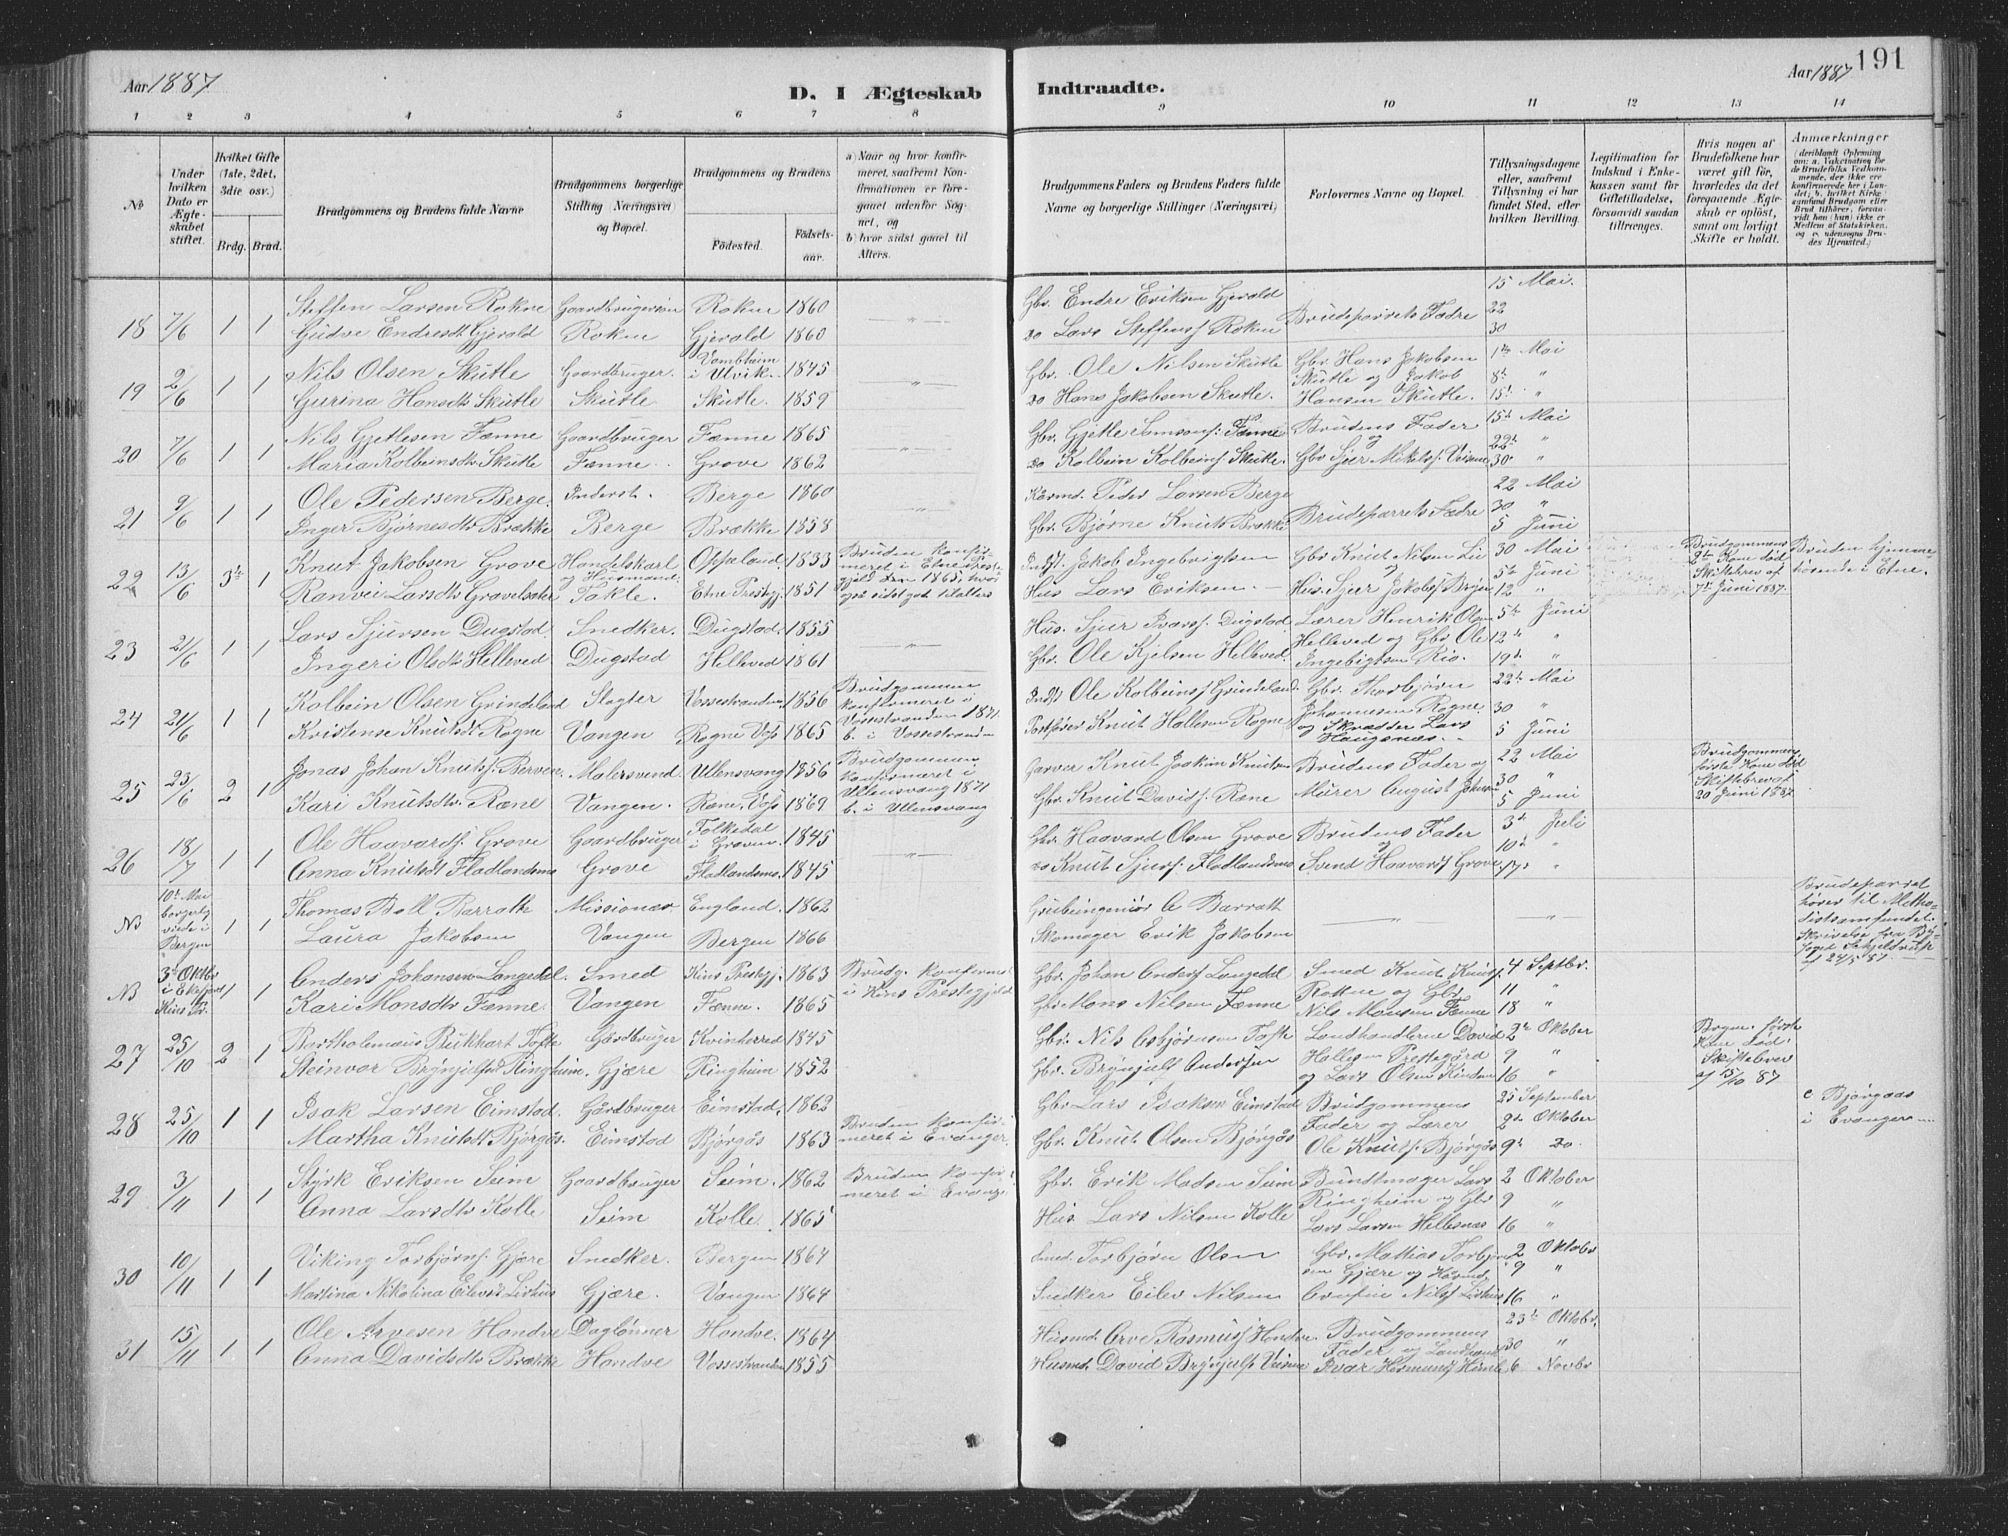 Aar 1887
D. I Ægteskab
Indtraadte.
Aar 1887
191
1 2 3 4 5 6 7 8 9 10 11 12 13 14
No
Under hvilken Dato er Ægteskabet stiftet.
Hvilket Gifte (1ste, 2det, 3die osv.)
Brdg. Brud.
Brudgommens og Brudens fulde Navne
Brudgommens borgerlige Stilling (Næringsvei) og Bopæl.
Brudgommens og Brudens
Fødested.
Fødselsaar.
a) Naar og hvor konfirmeret, saafremt Konfirmationen er foregaaet udenfor Sognet, og
b) hvor sidst gaaet til Alters.
Brudgommens Faders og Brudens Faders fulde Navne og borgerlige Stillinger (Næringsvei)
Forlovernes Navne og Bopæl.
Tillysningsdagene eller, saafremt Tillysning ei har fundet Sted, efter hvilken Bevilling.
Legitimation for Indskud i Enkekassen samt for Giftetilladelse, forsaavidt saadan tiltrænges.
Hvis nogen af Brudefolkene har været gift før, hvorledes da det foregaaende Ægteskab er opløst, samt om lovligt Skifte er holdt.
Anmærkninger
18 7/6 1 1
Steffen Larsen Rokne Gaardbrugersøn Rokne 1860
Gudve Endresdtr Gjerald Rokne Gjerald 1860
Gbr. Endre Eriksen Gjerald
do Lars Steffens. Rokne
Brudeparrets Fædre
15 Mai.
22
30
19 2/6 1 1
Nils Olsen Skutle Gaardbruger. i Ulvik. 1845
Gurina Hansdtr Skutle Skutle Skutle. 1859
Gbr. Ole Nilsen Skutle
do Hans Jakobsen Skutle.
Gbr Hans Jakobsen
Skutle og Jakob
Hansen Skutle.
1te Mai
8de "
15de "
20 7/6 1 1
Nils Gjetlesen Fænne Gaardbruger Fænne 1865
Maria Kolbeinsdtr Skutle Fænne. Grove 1862
Gbr. Gjetle Samsons. Fænne
do Kolbein Kolbeins. Skutle.
Brudens Fader
og
Gbr Sjur Mikels.
15de Mai
22de "
30 "
21 9/6 1 1
Ole Pedersen Berge. Inderst. Berge 1860
Inger Bjørnesdtr Brække Berge Brække 1858
Peder Larsen Berge
Gbr. Bjørne Knuts. Brække
Brudeparrets Fædre
22 Mai
30 "
5 Juni
22 13/6 3de 1
Knut Jakobsen Grove Handelskarl Oppeland 1833
og Husmand
Ranvei Larsdtr Takle. Etne Prestgj. 1851
Bruden konfirmeret i Etne Prestegjeld
Jakob Ingebrigtsen
Hus Lars Eriksen
Gbr Knut Nilsen Lie
og
Hus. Sjur Jakobs.
30 Mai
5te Juni
12 "
Brudgommens
2de Kone død
Skiftebrev af
7de Juni 1887.
Bruden hjemmehørende i Etne.
23 21/6 1 1
Lars Sjursen Dugstad Snedker. Dugstad. 1855
Ingeri Olsdtr Helleved Dugstad Helleved 1861
Hus. Sjur Ivars. Dugstad
Gbr. Ole Kjelsen Helleved.
Lærer Henrik Olsen
Helleved og Gbr Ole
5te Juni
12te "
19de "
24 21/6 1 1
Kolbein Olsen Grindeland Slagter Vossestranden 1856
Kristense Knutsdtr Rogne Vangen Rogne Voss 1865
Brudgommen
konfirmeret i
Vossestranden 1871.
b. i Vossestranden
Ole Kolbeins. Grindeland.
Knut Hallesen Rogne
Gbr. Thorbjørn
Johannesen Rogne
og Skrædder Lars
Haugsnæs.
22de Mai
30 "
5 Juni
25 23/6 2 1
Jonas Johan Knuts. Berven Malersvend Ullensvang 1856
Kari Knutsdtr Rene Vangen. Rene, Voss 1869
Brudgommen
konfirmeret i
Ullensvang 1871
b. i Ullensvang
Garver Knut Joakim Knutsen
Gbr. Knut Davids. Rene
Brudens Fader og
Murer August
22 Mai
30 "
5 Juni
Brudgommens
første Kone død
Skiftebrev af
20 Juni 1887
26 18/7 1 1
Ole Haavards. Grove Gaardbruger Folkedal i Graven 1845
Anna Knutsdtr Fladlandsmo Grove Fladlandsmo. 1845
Gbr Haavard Olsen Grove
do Knut Sjurs. Fladlandsmo
Brudens Fader
og
Svend Haavards. Grove
3de Juli
10de "
17de "
NB 10de Mai borgerlig viede i Bergen 1 1
Thomas Ball Barratt Missionær England. 1862
Laura Jakobsen Vangen Bergen 1866
Grubeingeniør A Barratt
Skomager Erik Jakobsen
Brudeparret
hører til Methodistsamfundet.
Skrivelse fra
24/5 87.
NB 3de Oktbr i 1 1
Anders Johansen Langedal. Smed Kins Prestegj. 1863
Kari Monsdtr Fænne Vangen Fænne. 1865
Brudg. konfirmeret
i Kins Prestegjeld
Gbr. Johan Anders. Langedal
Gbr Mons Nilsen Fænne
Smed Knut Knuts.
Rottne og Gbr
Nils Monsen Fænne
4 Septbr.
11 "
18 "
27 25/10 2 1
Bartholemæus Tofte Gårdbruger Kvinherred 1845
Steinvor Brynjulfsd Ringheim. Gjære Ringheim 1852
Gbr. Nils Asbjørnsen Tofte
Gbr. Brynjulf Andersen
Landhandlerne David
Hallesen Prestegård
og Lars Olsen
2de Oktober
9 "
16 "
første
Kone død.
Skiftebrev
af 15/10 87
28 25/10 1 1
Isak Larsen Eimstad. Gårdbruger Eimstad. 1862
Martha Knutsdt Bjørgås. Eimstad Bjørgås 1863
Bruden konfirmeret i Evanger.
Gbr Lars Isaksen Eimstad
Gbr. Knut Olsen Bjørgås
Brudgommens
Fader og Lærer
Ole Knuts. Bjørgås
25 September
2de Oktober
9de do.
c Bjørgaas
i Evanger
29 3/11 1 1
Styrk Eriksen Seim Gaardbruger Seim. 1862
Anna Larsdtr Kolle Seim Kolle. 1865
Bruden konfirmeret i Evanger
Gbr. Erik Madsen Seim
Hus. Lars Nilsen Kolle
Bundtmager Lars
Ringheim og Gbr
Lars Larsen Hellesnæs
2 Oktober
9 "
16 "
30 10/11 1 1
Viking Torbjørns. Gjære Snedker. Bergen 1864
Martina Nikolina Eilevsd Lirhus Gjære. Vangen 1864
Smed. Torbjørn Olsen
Snedker Eilev Nilsen
Gbr. Mathias Torbjørnsen Gjære og
Nils. Lirhus
2 Oktobr
9 "
16 "
31 15/11 1 1
Ole Arvesen Hondve Daglønner Hondve. 1864
Anna Davidsdtr Brække Hondve Vossestranden 1855
Husmd. Arve Rasmus. Hondve
Husmd. David Brynjulfs.
Brudgommens
Fader og
Ivar
23de Oktobr.
30 "
6 Novbr